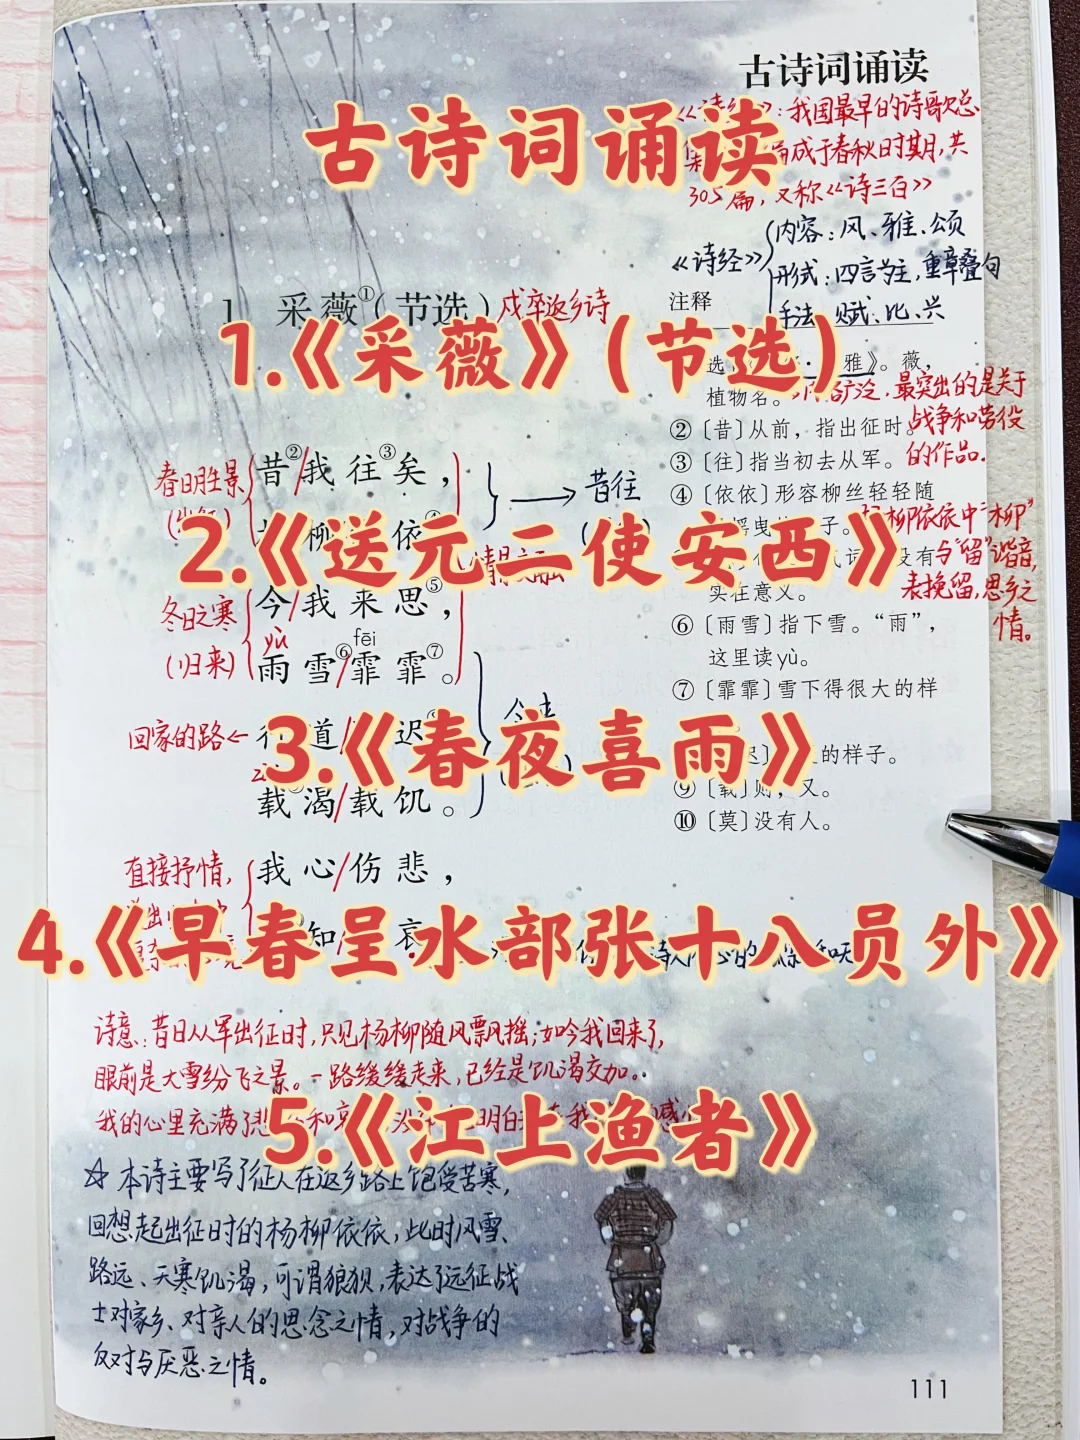 古诗词诵读
古诗词诵读
：我国最早的诗歌总
集
成于春秋时期，共
305篇，又称《诗三百》
《诗经》
内容：风、雅、颂
形式：四言为主，重章叠句
手法：赋、比、兴
1 采薇①（节选）
戍卒返乡诗
1.《采薇》（节选）
注释
雅》。薇，
植物名。
最突出的是关于
战争和劳役
的作品.
②〔昔〕从前，指出征时。
③〔往〕指当初去从军。
④〔依依〕形容柳丝轻轻随
柳依依中"柳"
与"留"谐音，
表挽留，思乡之
情。
实在意义。
⑥〔雨雪〕指下雪。“雨”，
这里读yù。
⑦〔霏霏〕雪下得很大的样
的样子。
⑨〔载〕则，又。
⑩〔莫〕没有人。
春日胜景
昔②/我往③矣，
昔往
柳
依
2.《送元二使安西》
冬日之寒
(归来)
今/我来思⑤，
yù
fēi
雨雪⑥/霏霏⑦。
回家的路←
道
迟
3.《春夜喜雨》
载渴/载饥。
直接抒情，
我心/伤悲，
知/
哀
4.《早春呈水部张十八员外》
诗意：昔日从军出征时，只见杨柳随风飘摇；如今我回来了，
眼前是大雪纷飞之景。一路缓缓走来，已经是饥渴交加。
我的心里充满了
5.《江上渔者》
☆本诗主要写了征人在返乡路上饱受苦寒，
回想起出征时的杨柳依依，此时风雪、
路远、天寒饥渴，可谓狼狈，表达了远征战
士对家乡、对亲人的思念之情，对战争的
反对与厌恶之情。
111